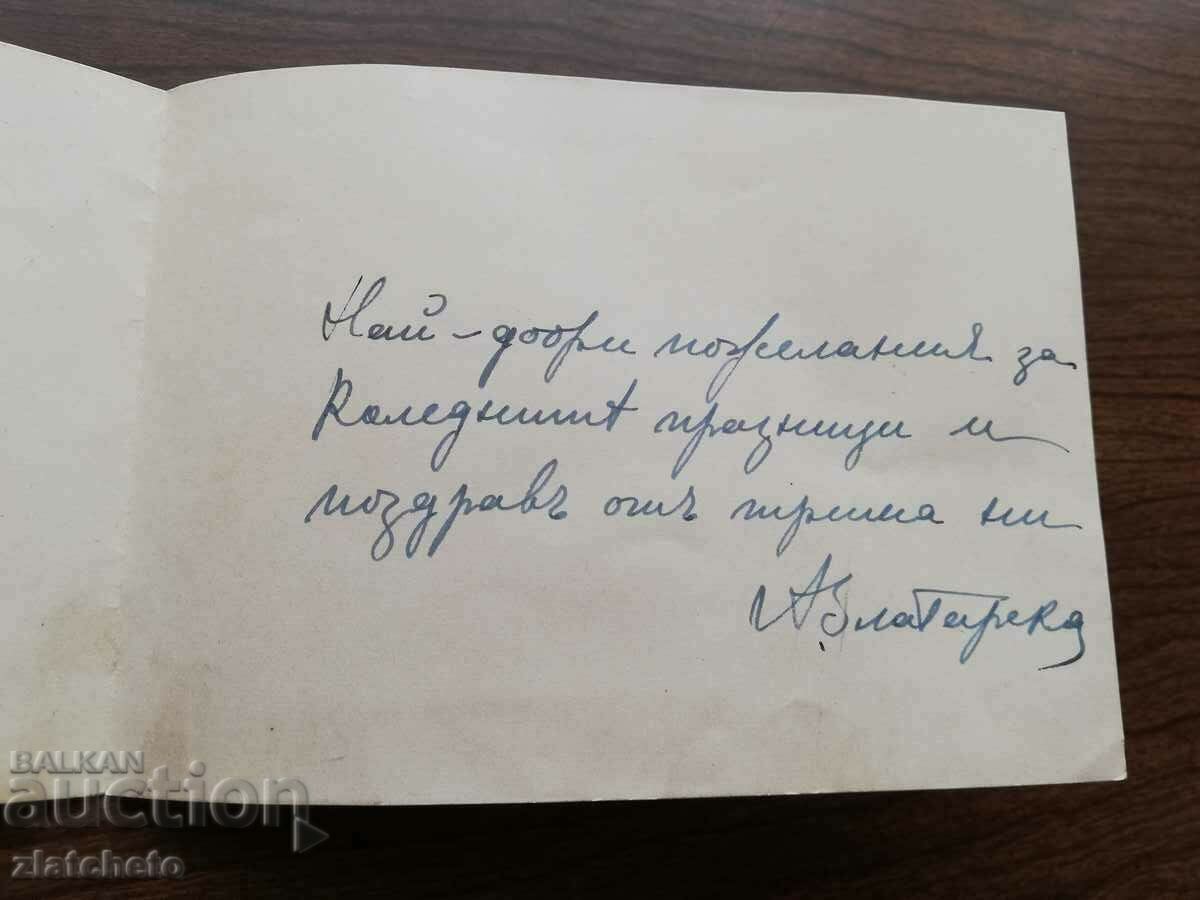 Най-добри пожелания за
Коледнитѣ празници и
поздравъ отъ трима ни
АЗлатарска
BALKAN
auction
zlatcheto